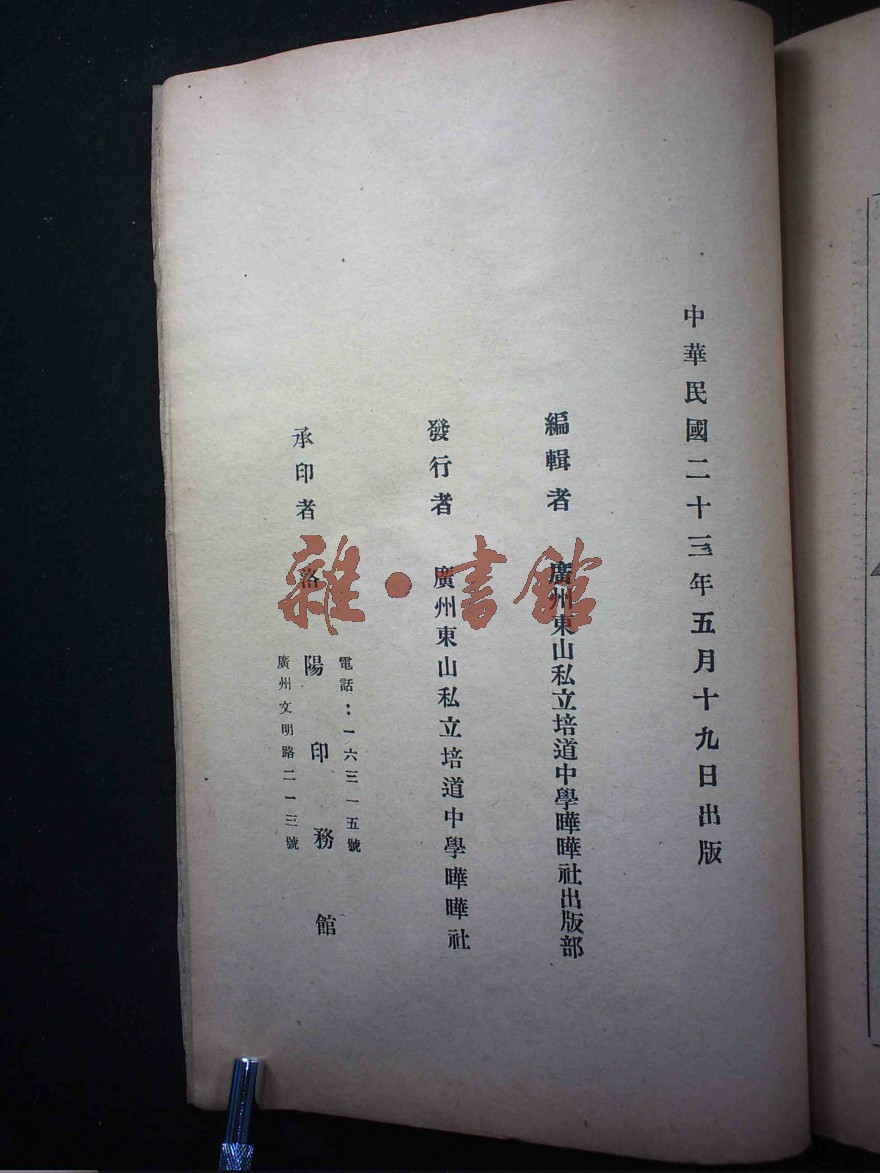 中華民國二十三年五月十九日出版
編輯者 廣州東山私立培道中學曄曄社出版部
發行者 廣州東山私立培道中學曄曄社
電話：一六三一五號
承印者 洛陽印務館
廣州文明路二一三號
雜·書館